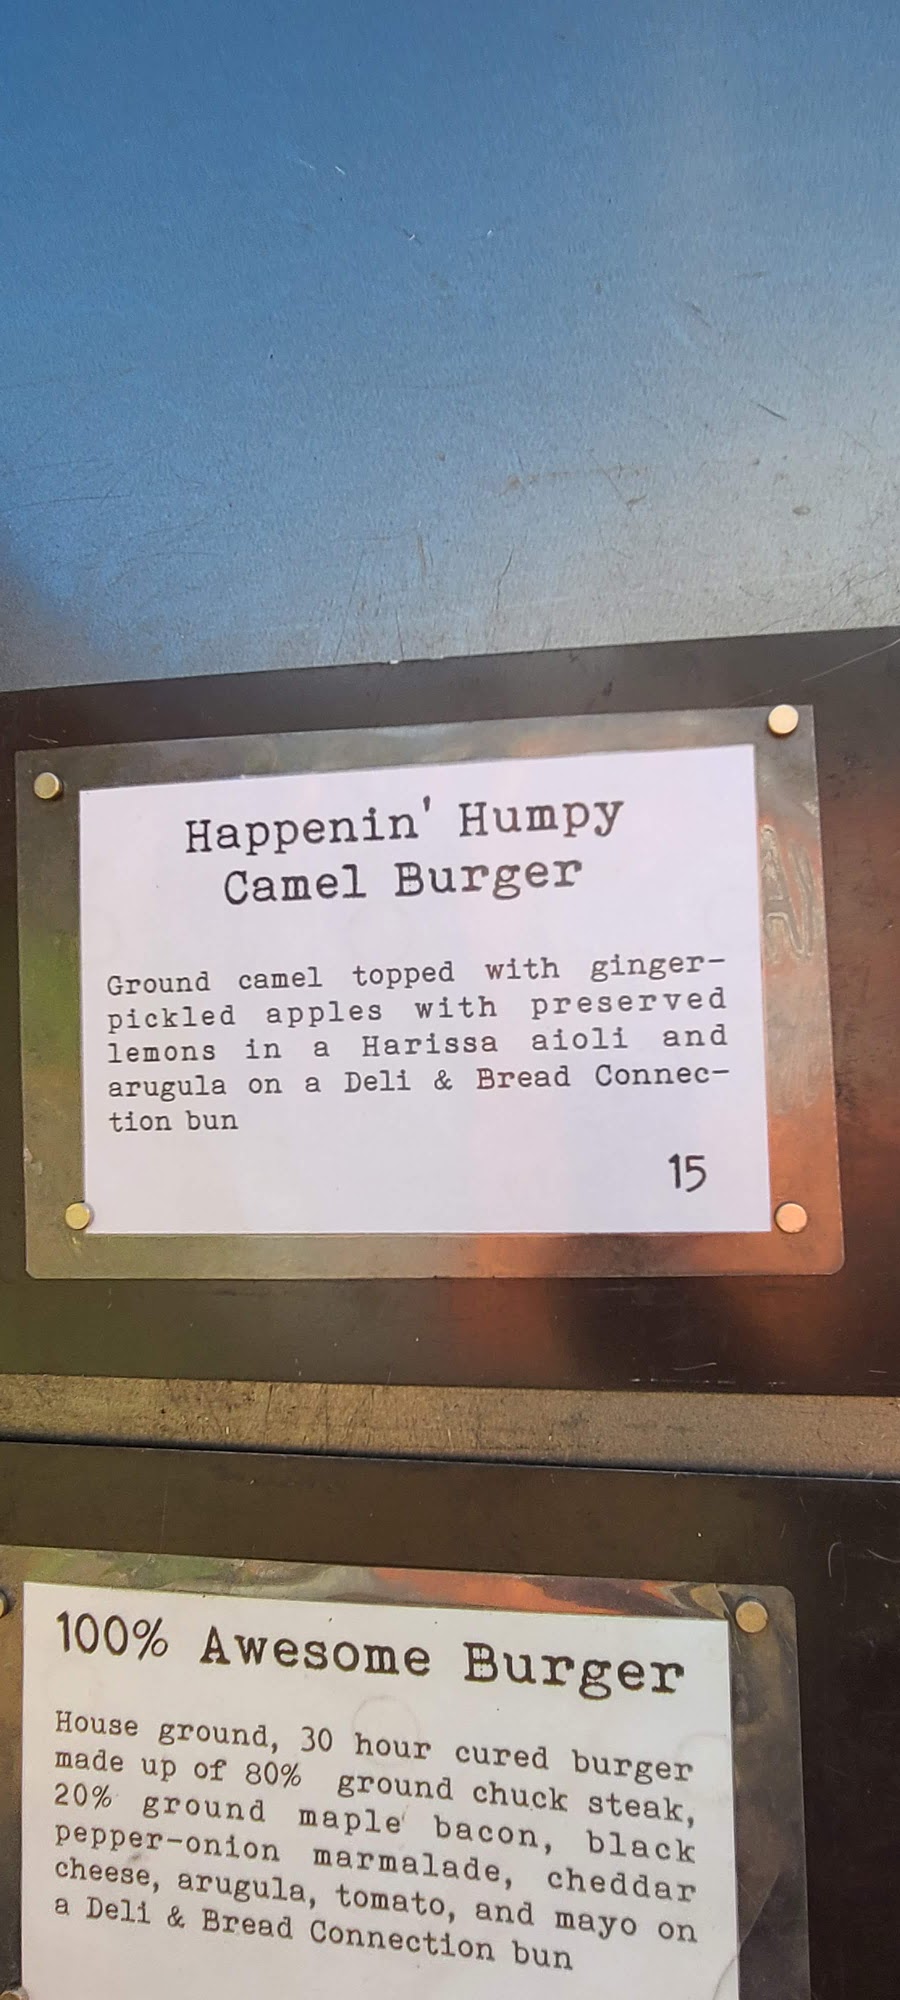 Happenin' Humpy
Camel Burger
Ground camel topped with ginger-
pickled apples with preserved
lemons in a Harissa aioli and
arugula on a Deli & Bread Connec-
tion bun
15
100% Awesome Burger
House ground, 30 hour cured burger
made up of 80% ground chuck steak,
20% ground maple bacon, black
pepper-onion marmalade, cheddar
cheese, arugula, tomato, and mayo on
a Deli & Bread Connection bun